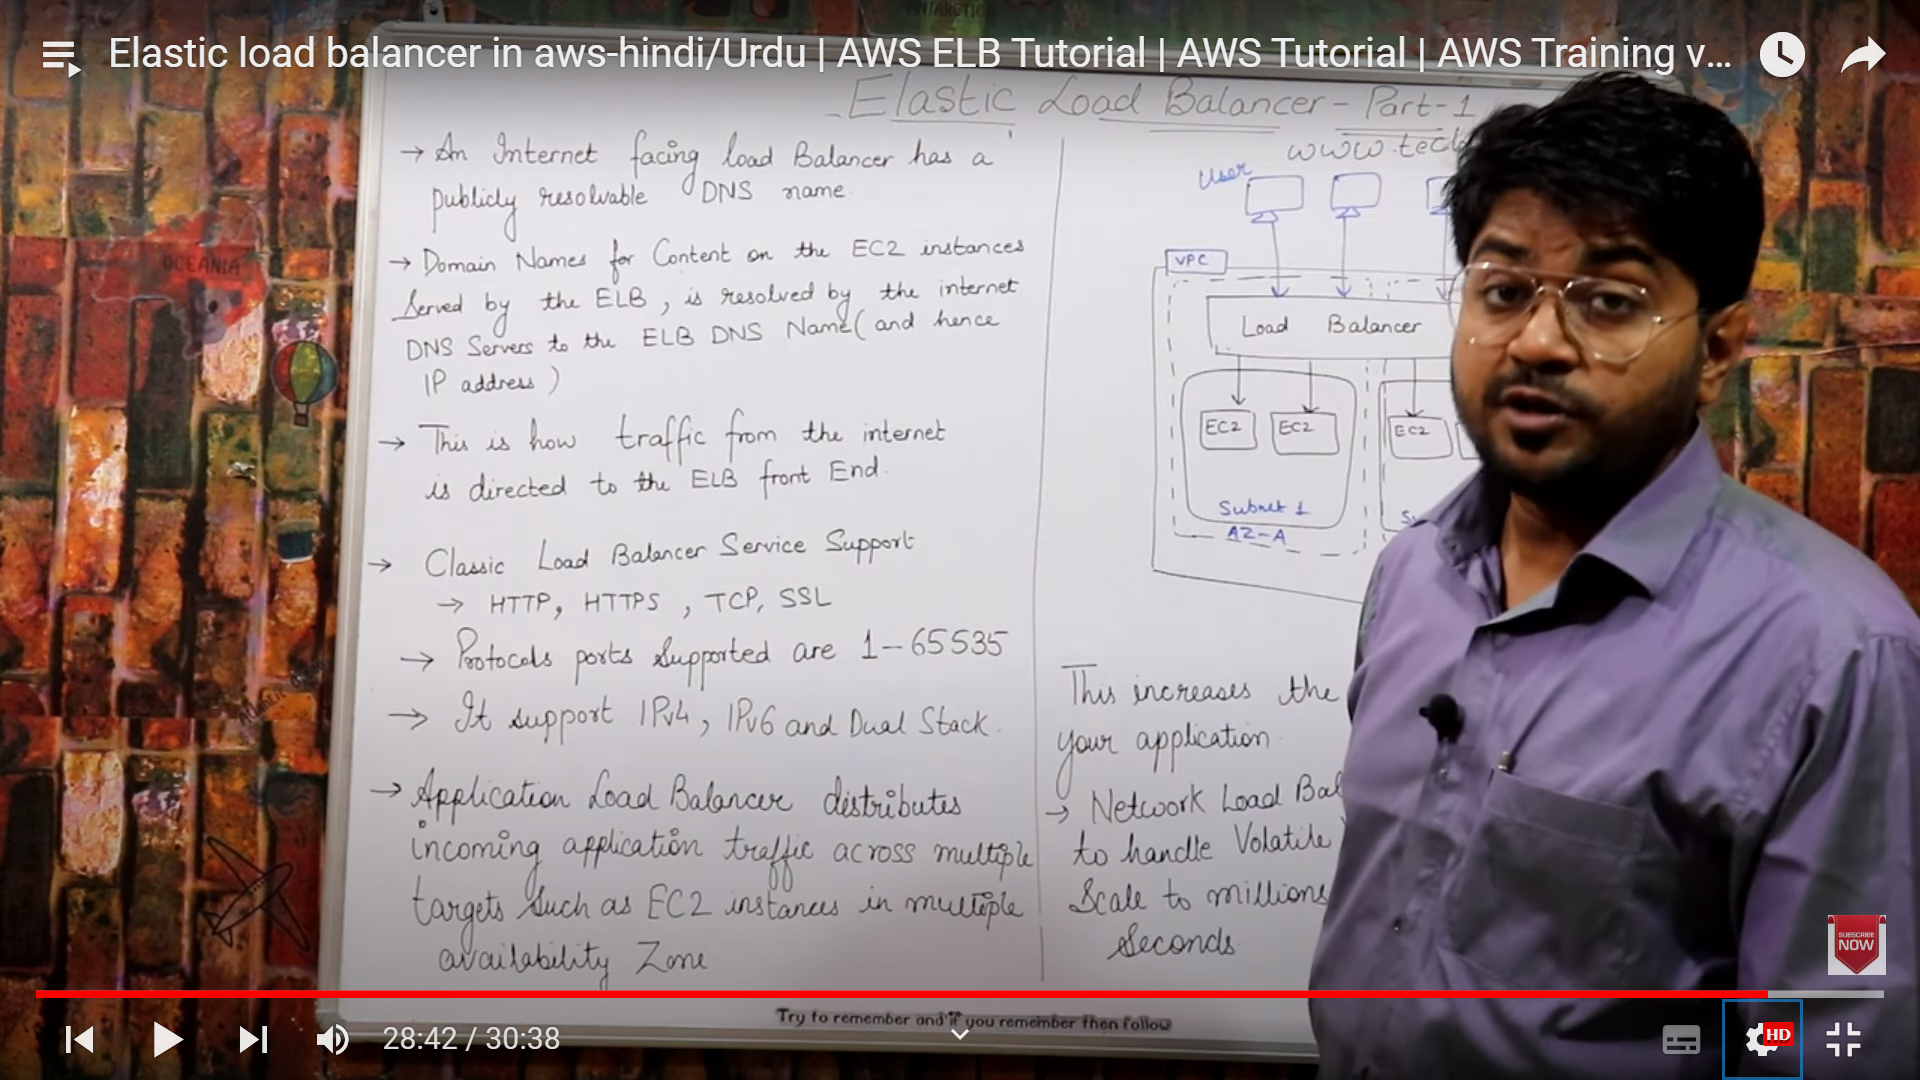 ANTARCTICA
Elastic load balancer in aws-hindi/Urdu | AWS ELB Tutorial | AWS Tutorial | AWS Training v...
Elastic Load Balancer - Part-1
www.tec
→ An Internet facing load Balancer has a
publicly resolvable DNS name.
→ Domain Names for Content on the EC2 instances
Served by the ELB, is resolved by the internet
DNS Servers to the ELB DNS Name (and hence
IP address)
→ This is how traffic from the internet
is directed to the ELB front End.
→ Classic Load Balancer Service Support
→ HTTP, HTTPS, TCP, SSL
→ Protocols ports supported are 1-65535
→ It support IPv4, IPv6 and Dual Stack.
→ Application Load Balancer distributes
incoming application traffic across multiple
targets such as EC2 instances in multiple
availability Zone
User
VPC
Load Balancer
EC2 EC2 EC2
Subnet 1
AZ-A
This increases the
your application.
→ Network Load Bal
to handle Volatile
Scale to millions
Seconds
OCEANIA
Try to remember and if you remember then follow
SUBSCRIBE
NOW
28:42 / 30:38
HD